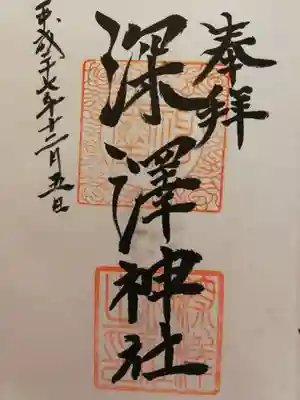 奉拝
深澤神社
平成二十七年十二月五日